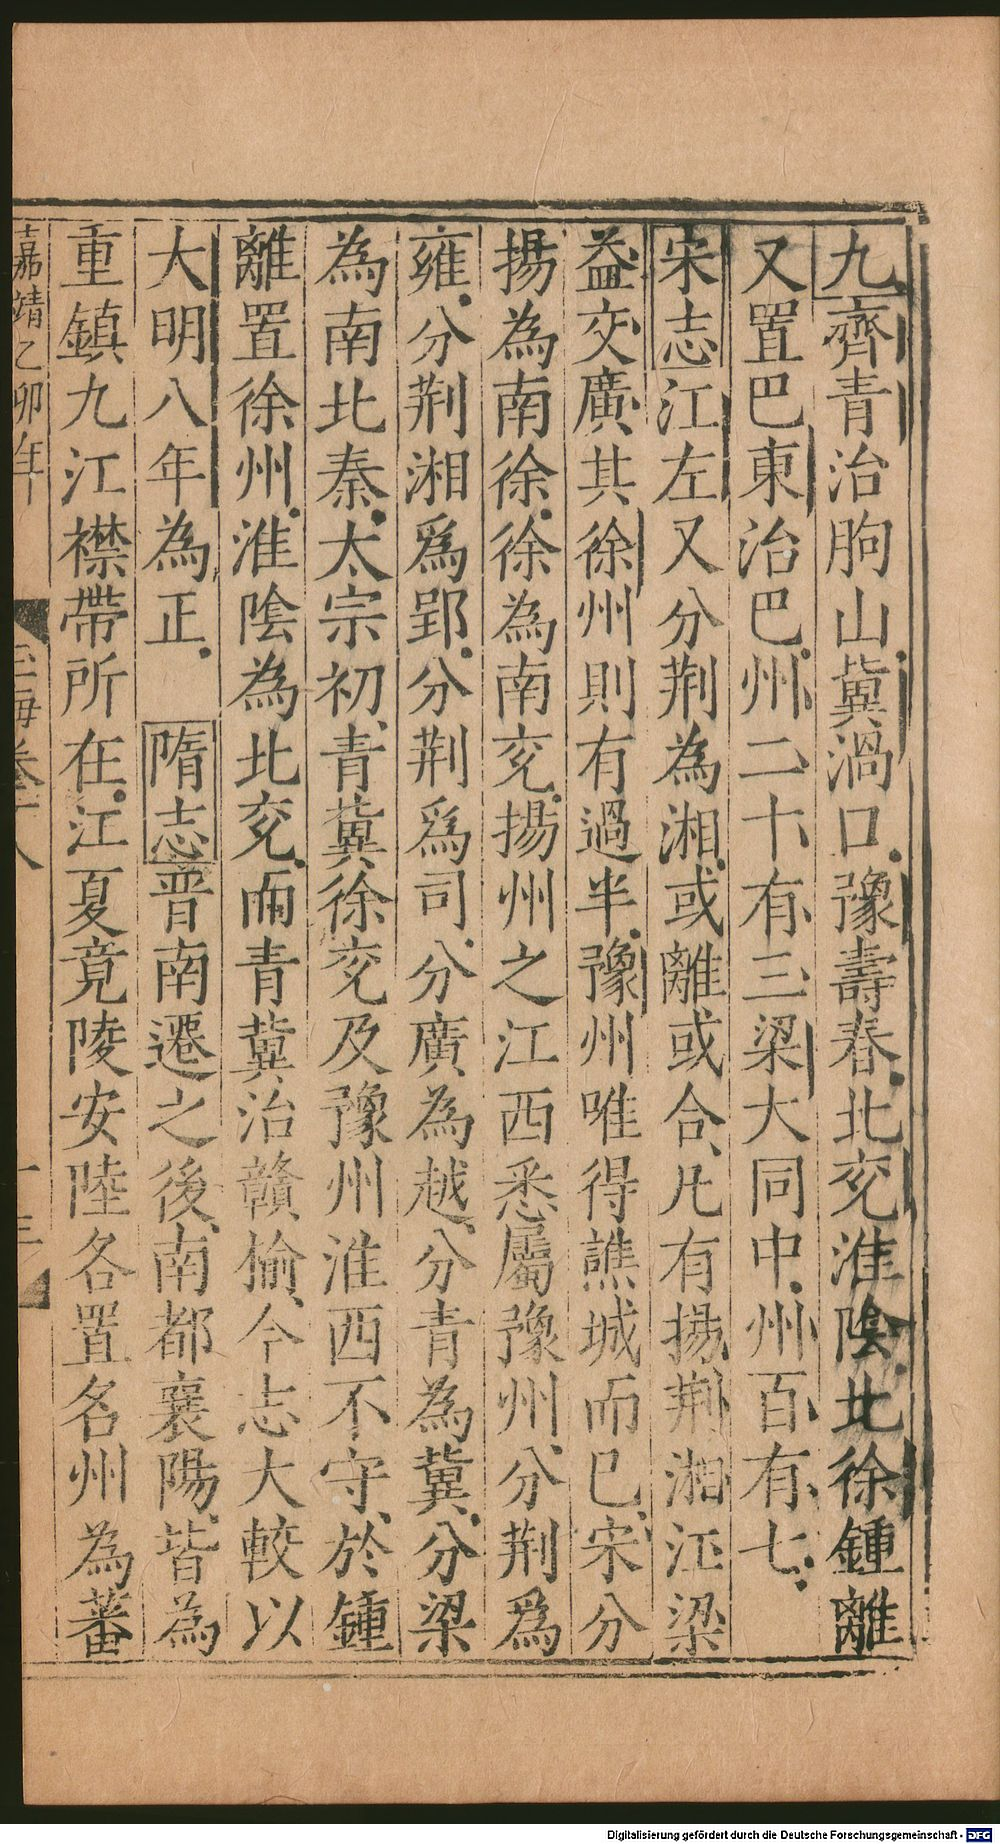 九齊青治朐山冀渦口豫壽春北兖淮陰北徐鍾離
又置巴東治巴州二十有三梁大同中州百有七
宋志江左又分荆為湘或離或合凡有揚荆湘江梁
益交廣其徐州則有過半豫州唯得譙城而已宋分
揚為南徐徐為南兖揚州之江西悉屬豫州分荆爲
雍分荆湘爲郢分荆爲司分廣為越分青為冀分梁
為南北秦太宗初青冀徐兖及豫州淮西不守於鍾
離置徐州淮陰為北兖而青冀治贛榆今志大較以
大明八年為正 隋志晋南遷之後南都襄陽皆為
重鎮九江襟帶所在江夏竟陵安陸各置名州為蕃
嘉靖乙卯年 玉海卷十八 十三
Digitalisierung gefördert durch die Deutsche Forschungsgemeinschaft - DFG